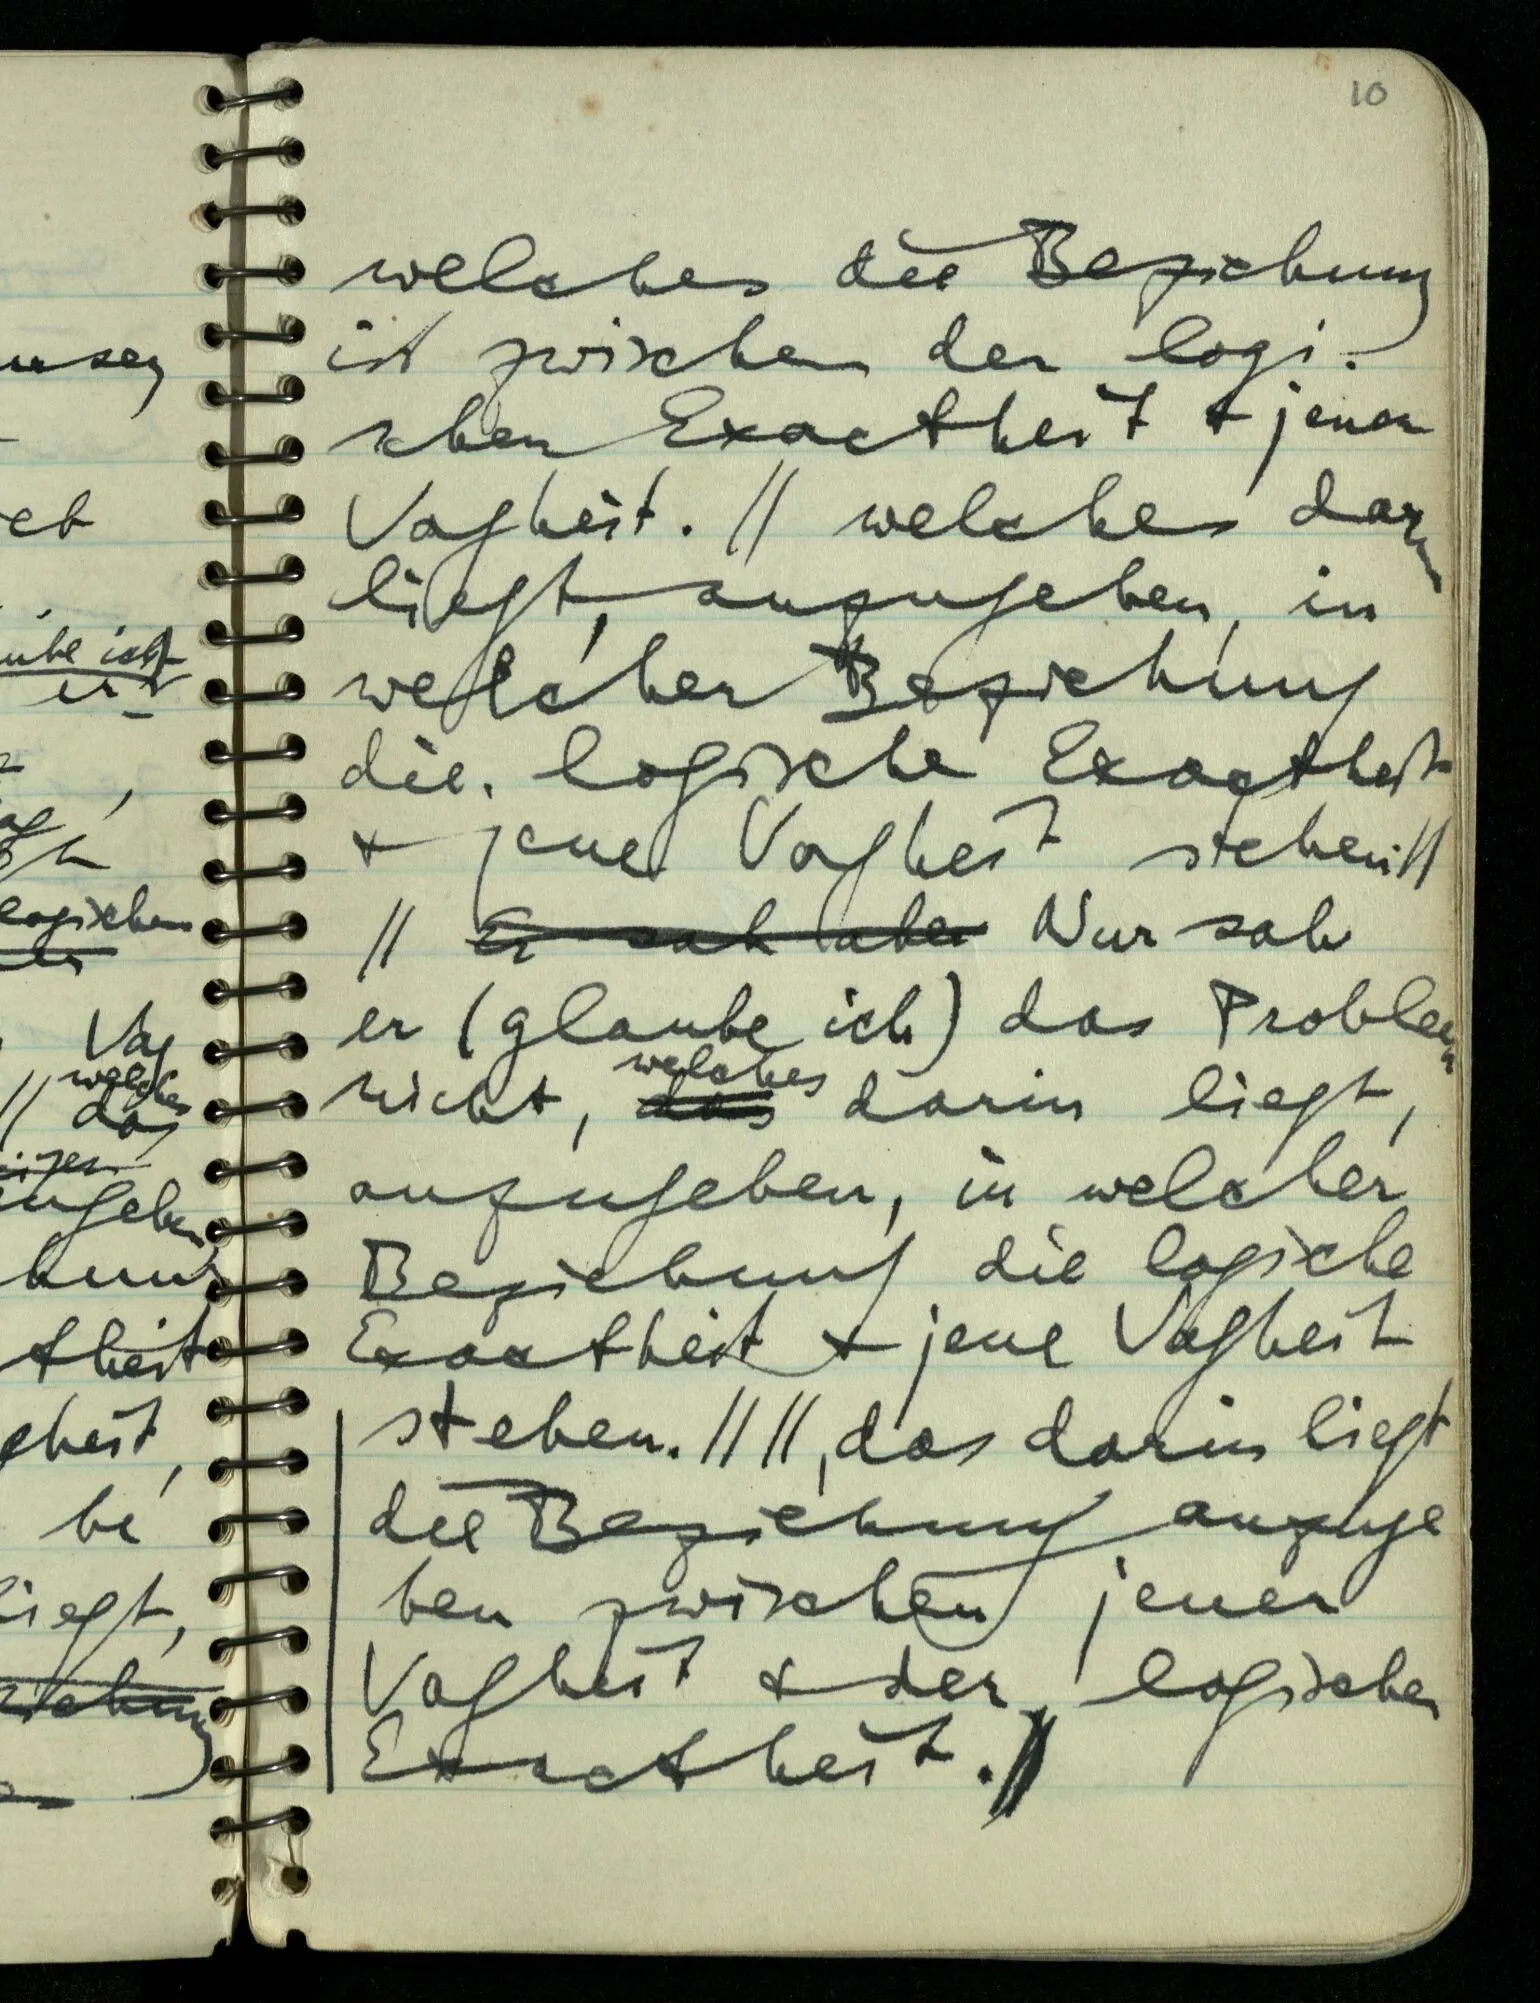 10
welches die Beziehung
ist zwischen der logi-
schen Exactheit + jener
Vagheit. // welches darin
liegt, anzugeben, in
welcher Beziehung
die logische Exactheit
+ jene Vagheit stehen. //
// Er sah aber Nur sah
er (glaube ich) das Problem
welches
nicht, das darin liegt,
anzugeben, in welcher
Beziehung die logische
Exactheit + jene Vagheit
stehen. // //, das darin liegt
die Beziehung anzuge
ben zwischen jener
Vagheit + der logischen
Exactheit. //